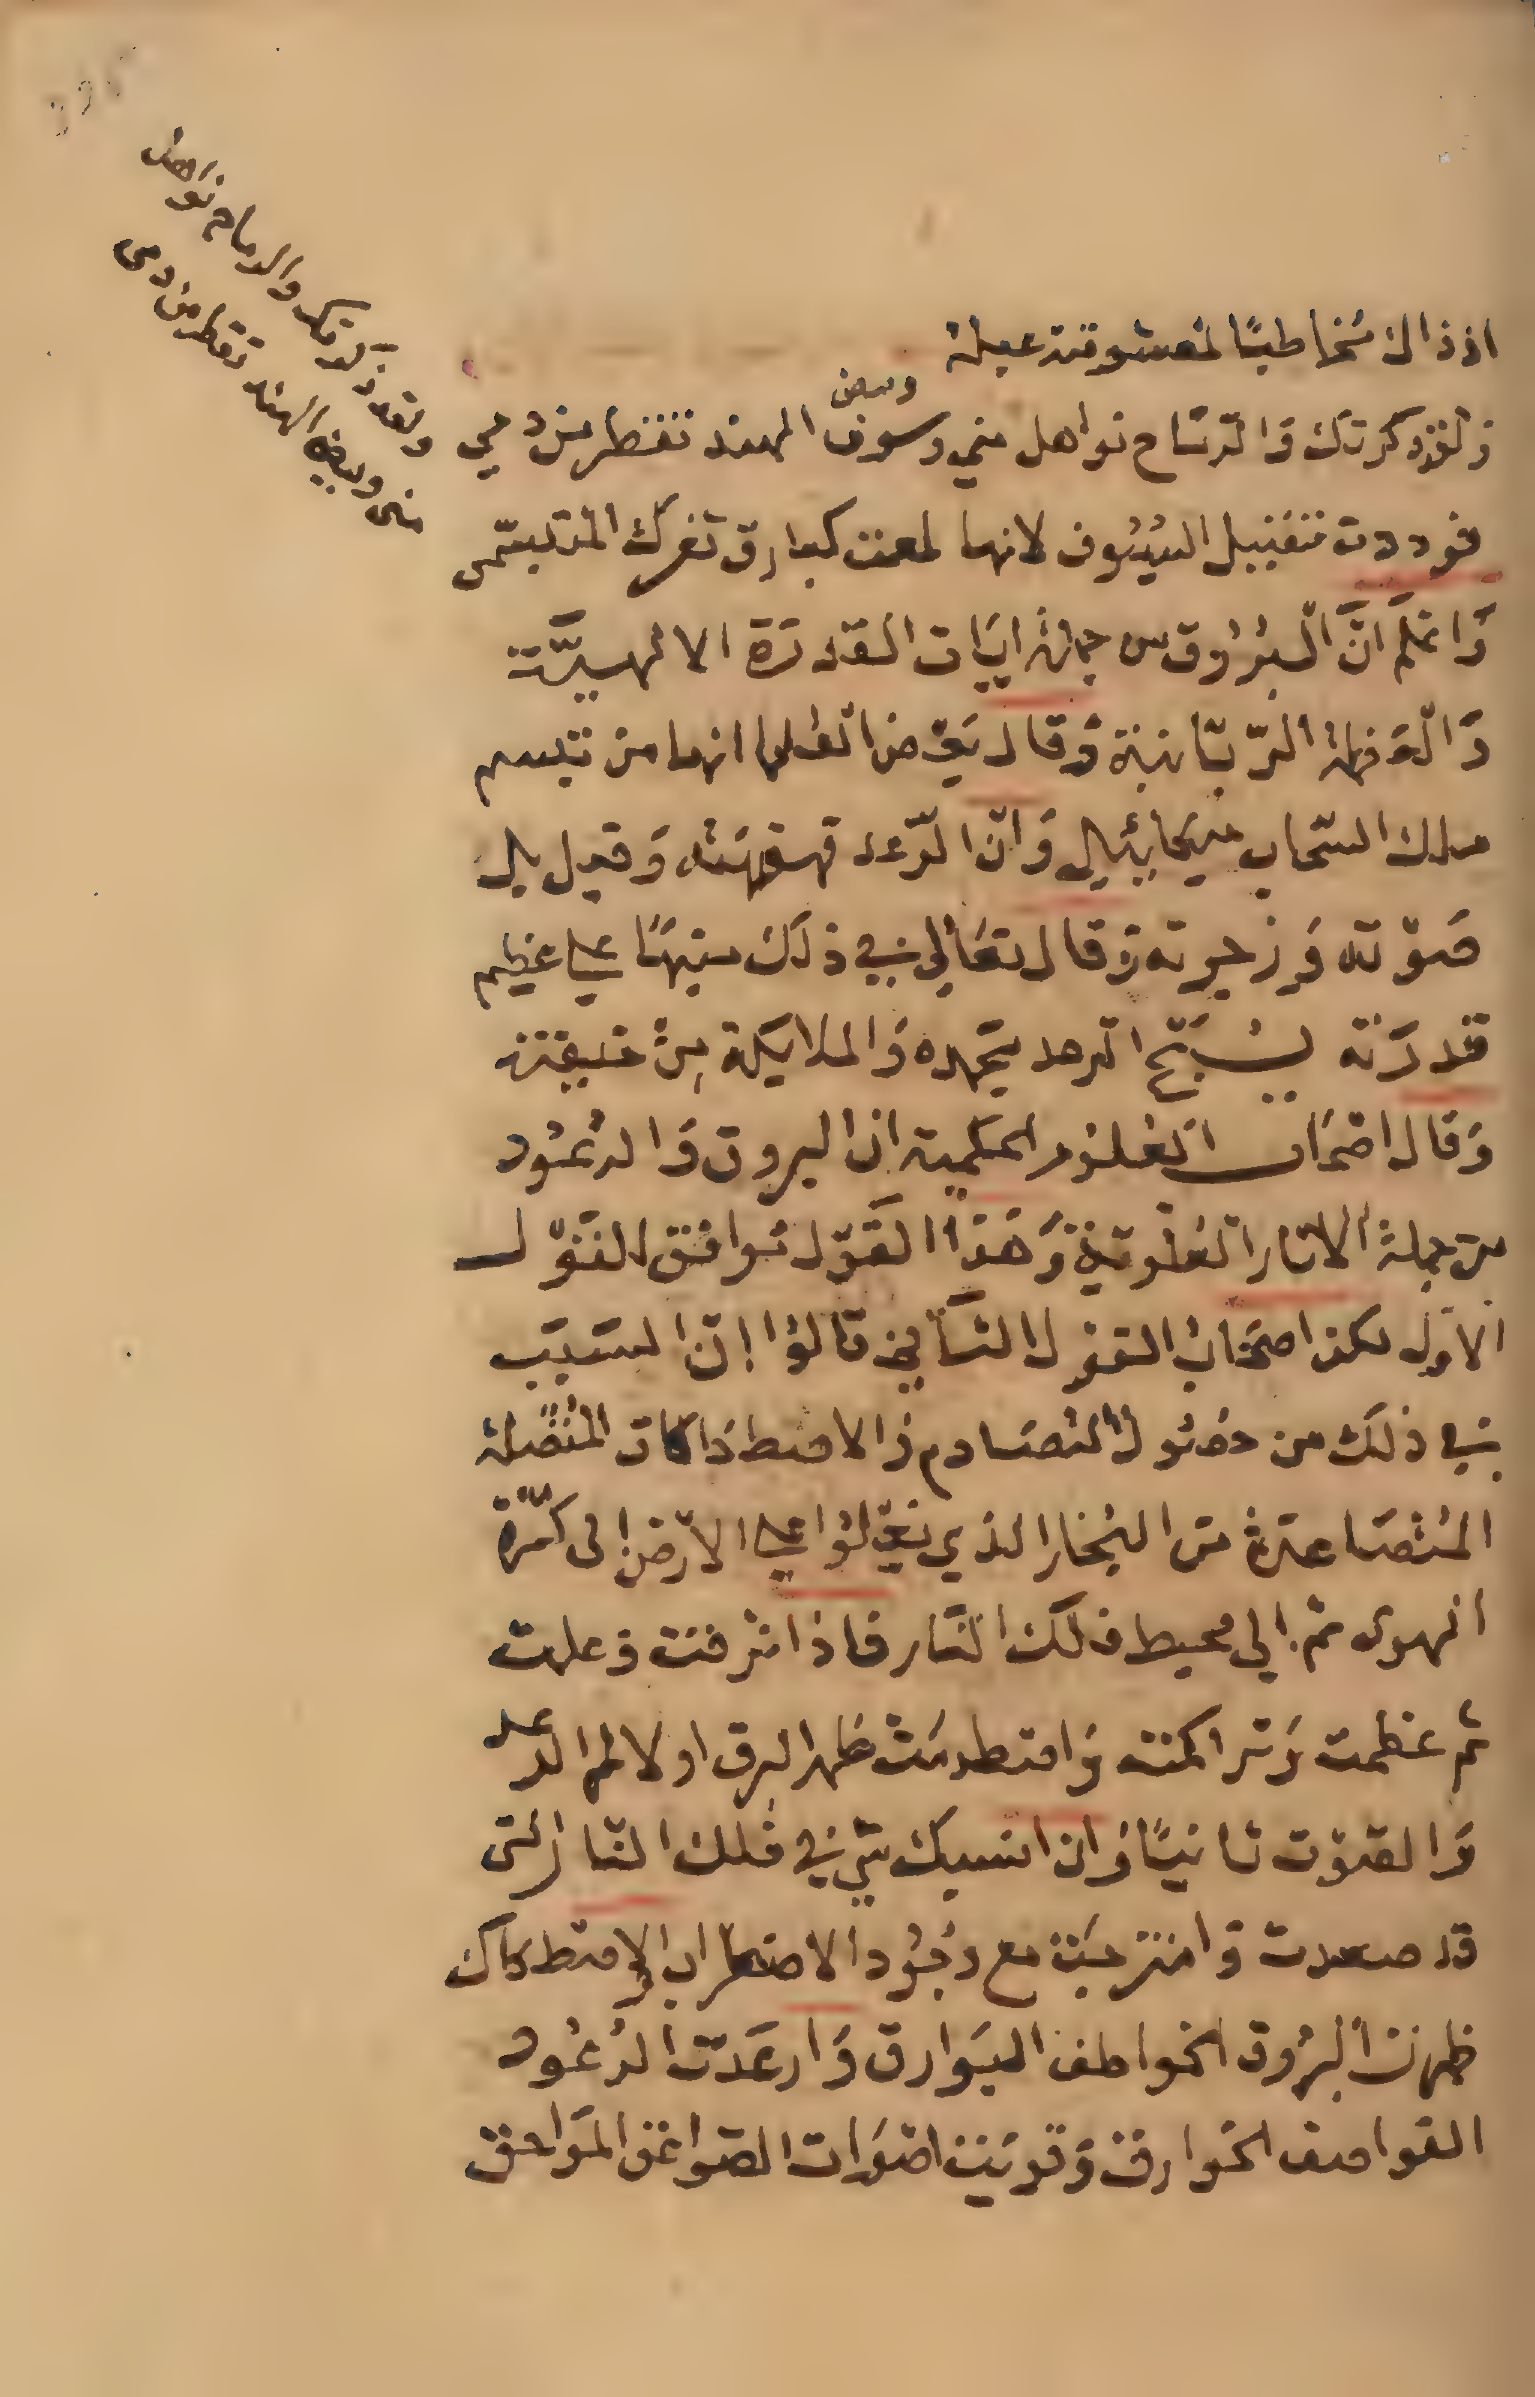 اذ ذاك مُخاطبًا لمعشوقته عبلة
وبيض
وَلَقد ذكرتك وَالرّمَاح نواهل مني وسيوف الهند تقطر من دمي
فوددت تقبيل السُيُوف لانها لمعت كبارق ثغرك المتبسّمى
وَاعْلَم انَّ الْبُرُوق من جملة ايَات القدرَة الالهيَّة
وَالْعَظمة الرّبّانية وَقال بَعْض العُلما انها من تبسم
ملك السّحاب ميكائيل وَانّ الرّعد قهقهَته وَقيل بل
صَوْته وَزجرته وَقال تعَالى في ذلكَ منبهًا على عَظيم
قدرَته يُسَبّح الرعد بحَمده وَالملايكة مِنْ خيفته
وَقال اصْحَاب العُلوُم الحكمية ان البروق وَالرعُود
من جملة الاثار العُلْويّة وَهَذا القَوْل يُوافق القَوْل
الاوّل لكن اصحَاب القول الثَّاني قالوُا انّ السَبَب
في ذلكَ من حصُول التصَادم وَالاصطدَاكات المتصّلة
المُتصَاعدة منَ البُخار الذي يَعْلوُا على الارْض الى كُرَة
الهوى ثم الي محيط فلكَ النّار فاذا ترقت وَعلت
ثم عظمت وَتراكمت وَاصطدمَت ظهر البرق اولا ثم الرعد
وَالصّوْت ثانيًا وَان انسبك شي في فلك النّار التى
قد صعدت وَامتزجت مع وجُود الاضطراب والاصطكاك
ظهرت البرُوق الخواطف البَوارق وَارعَدت الرُعُود
القواصف الخوارق وَقويَت اصْوَات الصّواعق المَواحق
ولقد ذكرتك والرماح نواهل
منى وبيض الهند تقطر من دمى